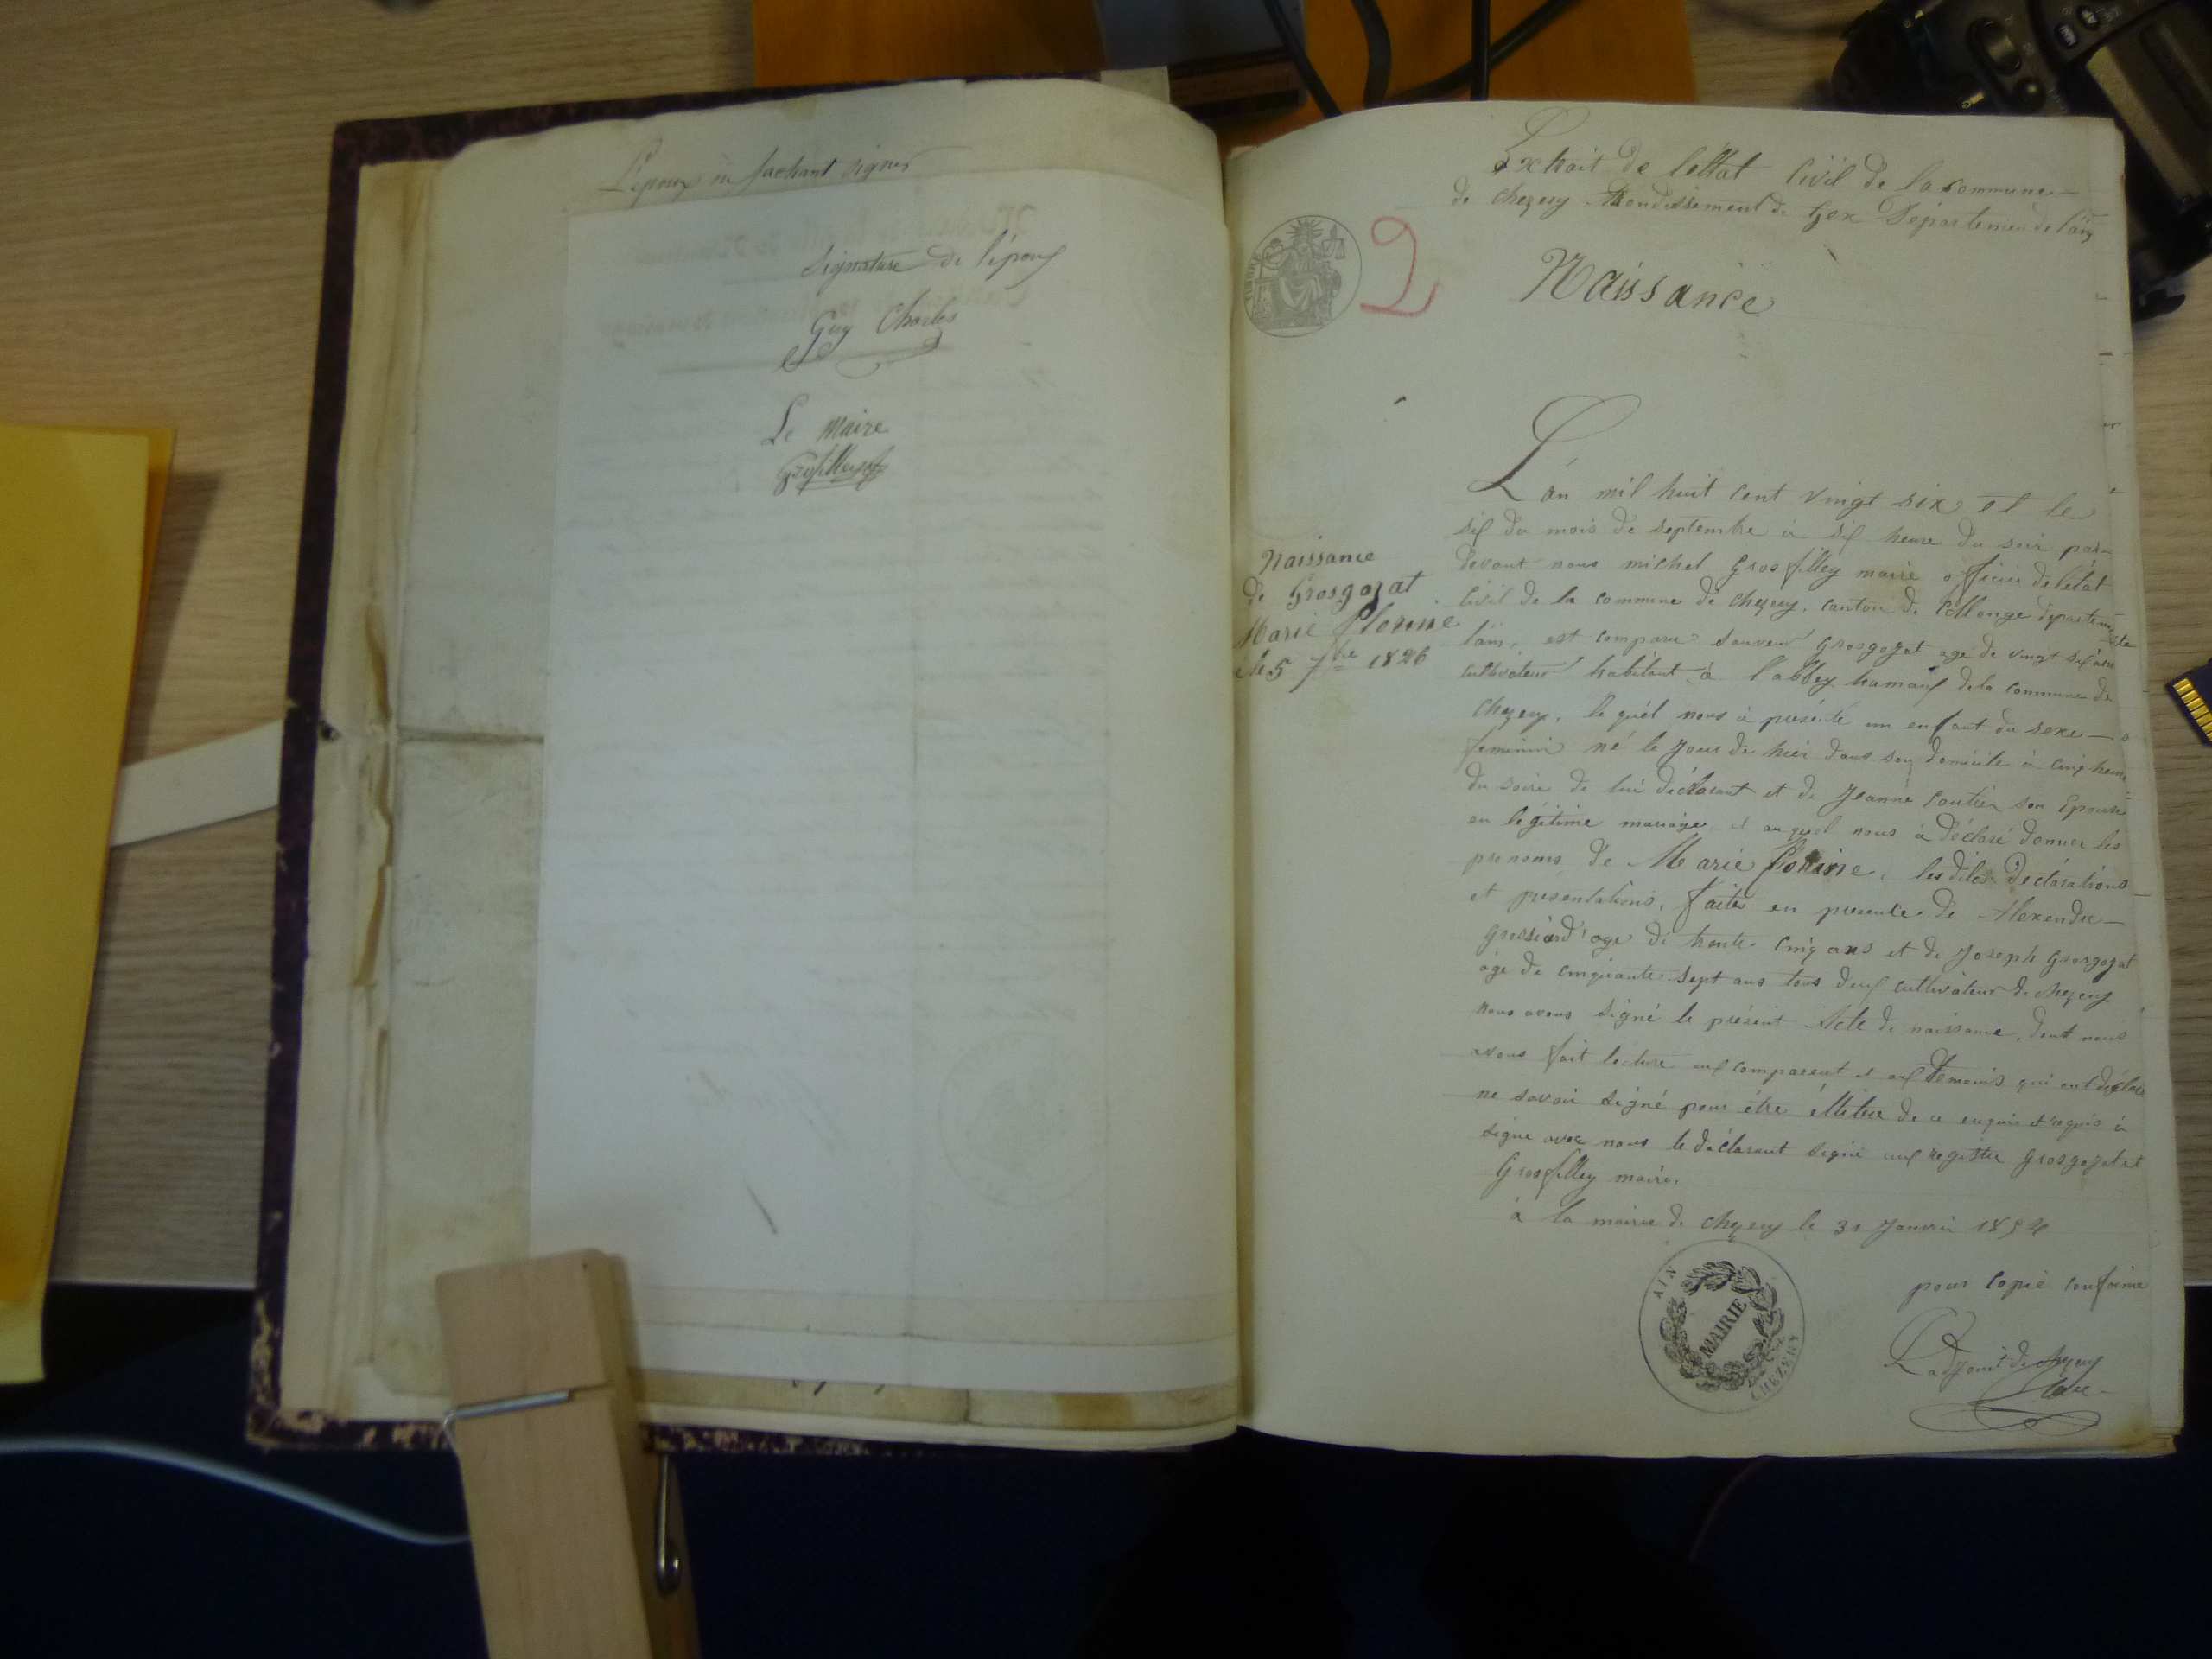 L'époux ne sachant signer
Signature de l'époux
Guy Charles
Le Maire
Grosfilley
Extrait de l'ettat Civil de la commune
de Chezery Arrondissement de Gex Departemen de l'ain
2
Naissance
Naissance
de Grosgozat
Marie florine
le 5 7bre 1826
L'an mil huit cent vingt six et le
six du mois de septembre à six heure du soir par
devant nous michel Grosfilley maire officier de l'état
Civil de la commune de Chezery, canton de Collonge departement de
l'ain, est comparu Grosgozat age de vingt six ans
cultivateur habitant à l'abbey hamaux de la commune de
Chezery, le quel nous à présenté un enfant du sexe
feminin né le jour de hier dans son domicile à cinq heure
du soire de lui déclarant et de Jeanne Coutier son Epouse
en légitime mariage et au quel nous à déclaré donner les
prenoms de Marie florine, les dites declarations
et présentations, faites en presence de Alexendre
age de trente cinq ans et de Joseph Grosgozat
age de cinquante sept ans tous deux cultivateur de chezery
nous avons signé le présent Acte de naissance, dont nous
avons fait lecture aux comparent et aux temoins qui ont déclaré
ne savoir signé pour être de ce enquis et requis à
signe avec nous le déclarant signé aux registre Grosgozat et
Grosfilley maire,
à la mairie de chezery le 31 Janvier 1854
pour copie conforme
L'adjoint de chezery
AIN
MAIRIE
CHEZERY